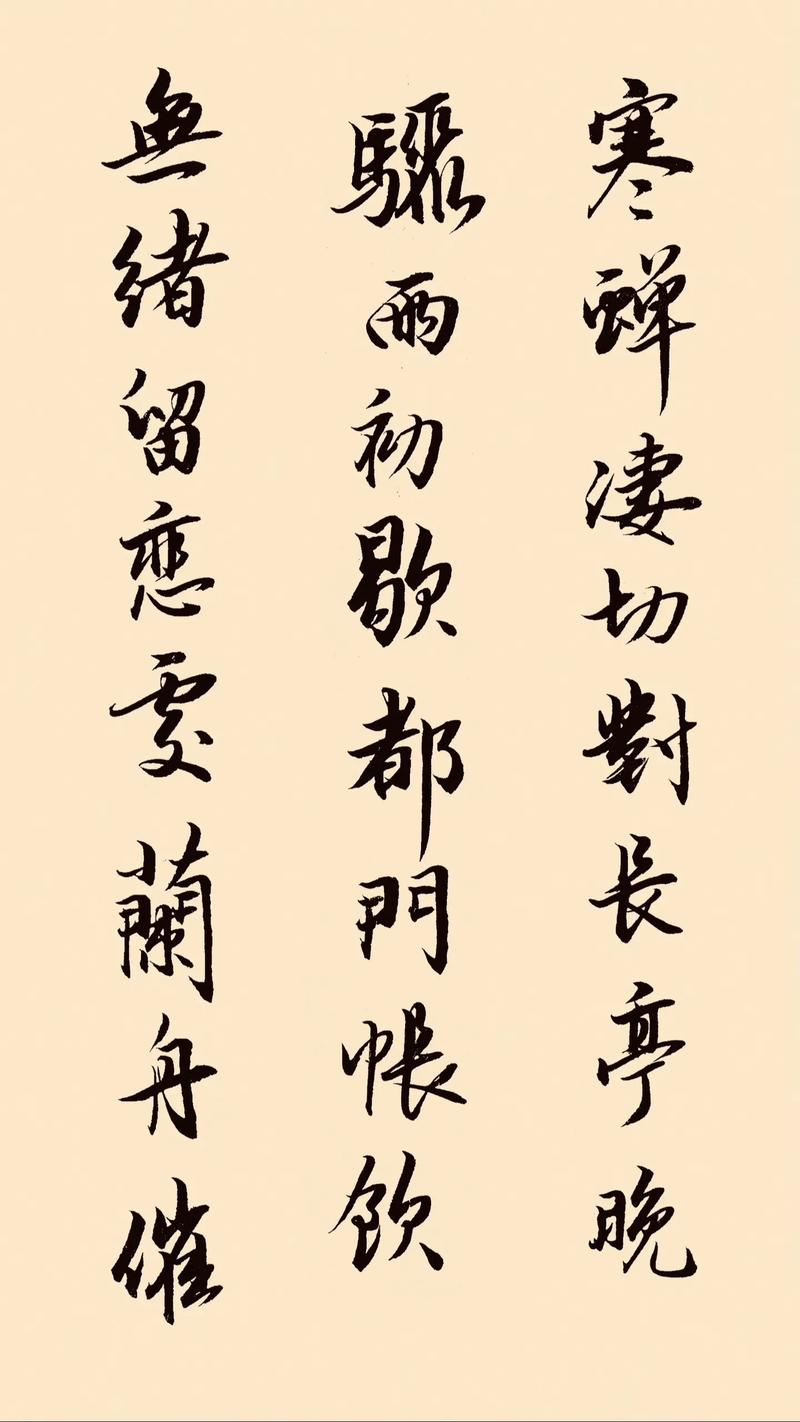 寒蟬淒切對長亭晚
驟雨初歇都門帳飲
無緒留戀處蘭舟催